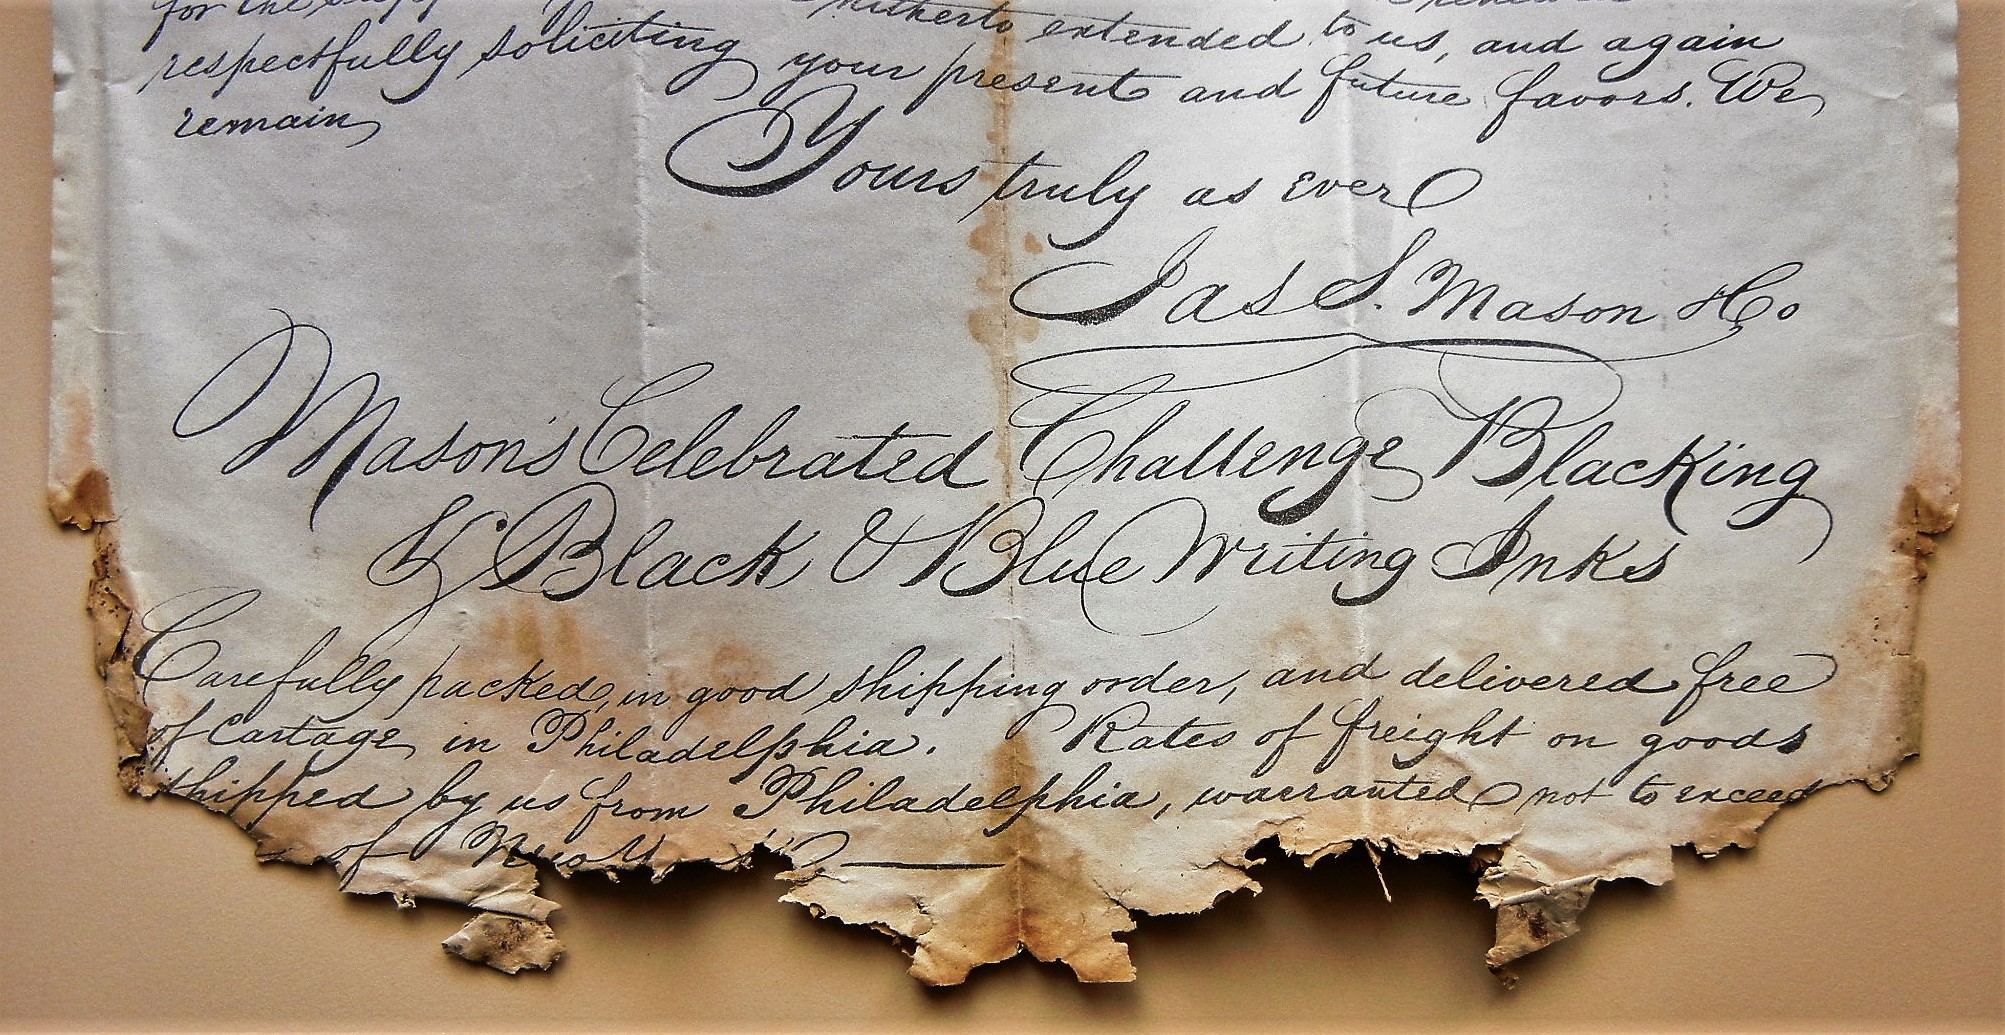 for the
hitherto extended to us, and again
respectfully soliciting your present and future favors. We
remain
Yours truly as ever
Jas S. Mason & Co
Mason's Celebrated Challenge Blacking
& Black & Blue Writing Inks
Carefully packed, in good shipping order, and delivered free
of Cartage in Philadelphia. Rates of freight on goods
shipped by us from Philadelphia, warranted not to exceed
of New York